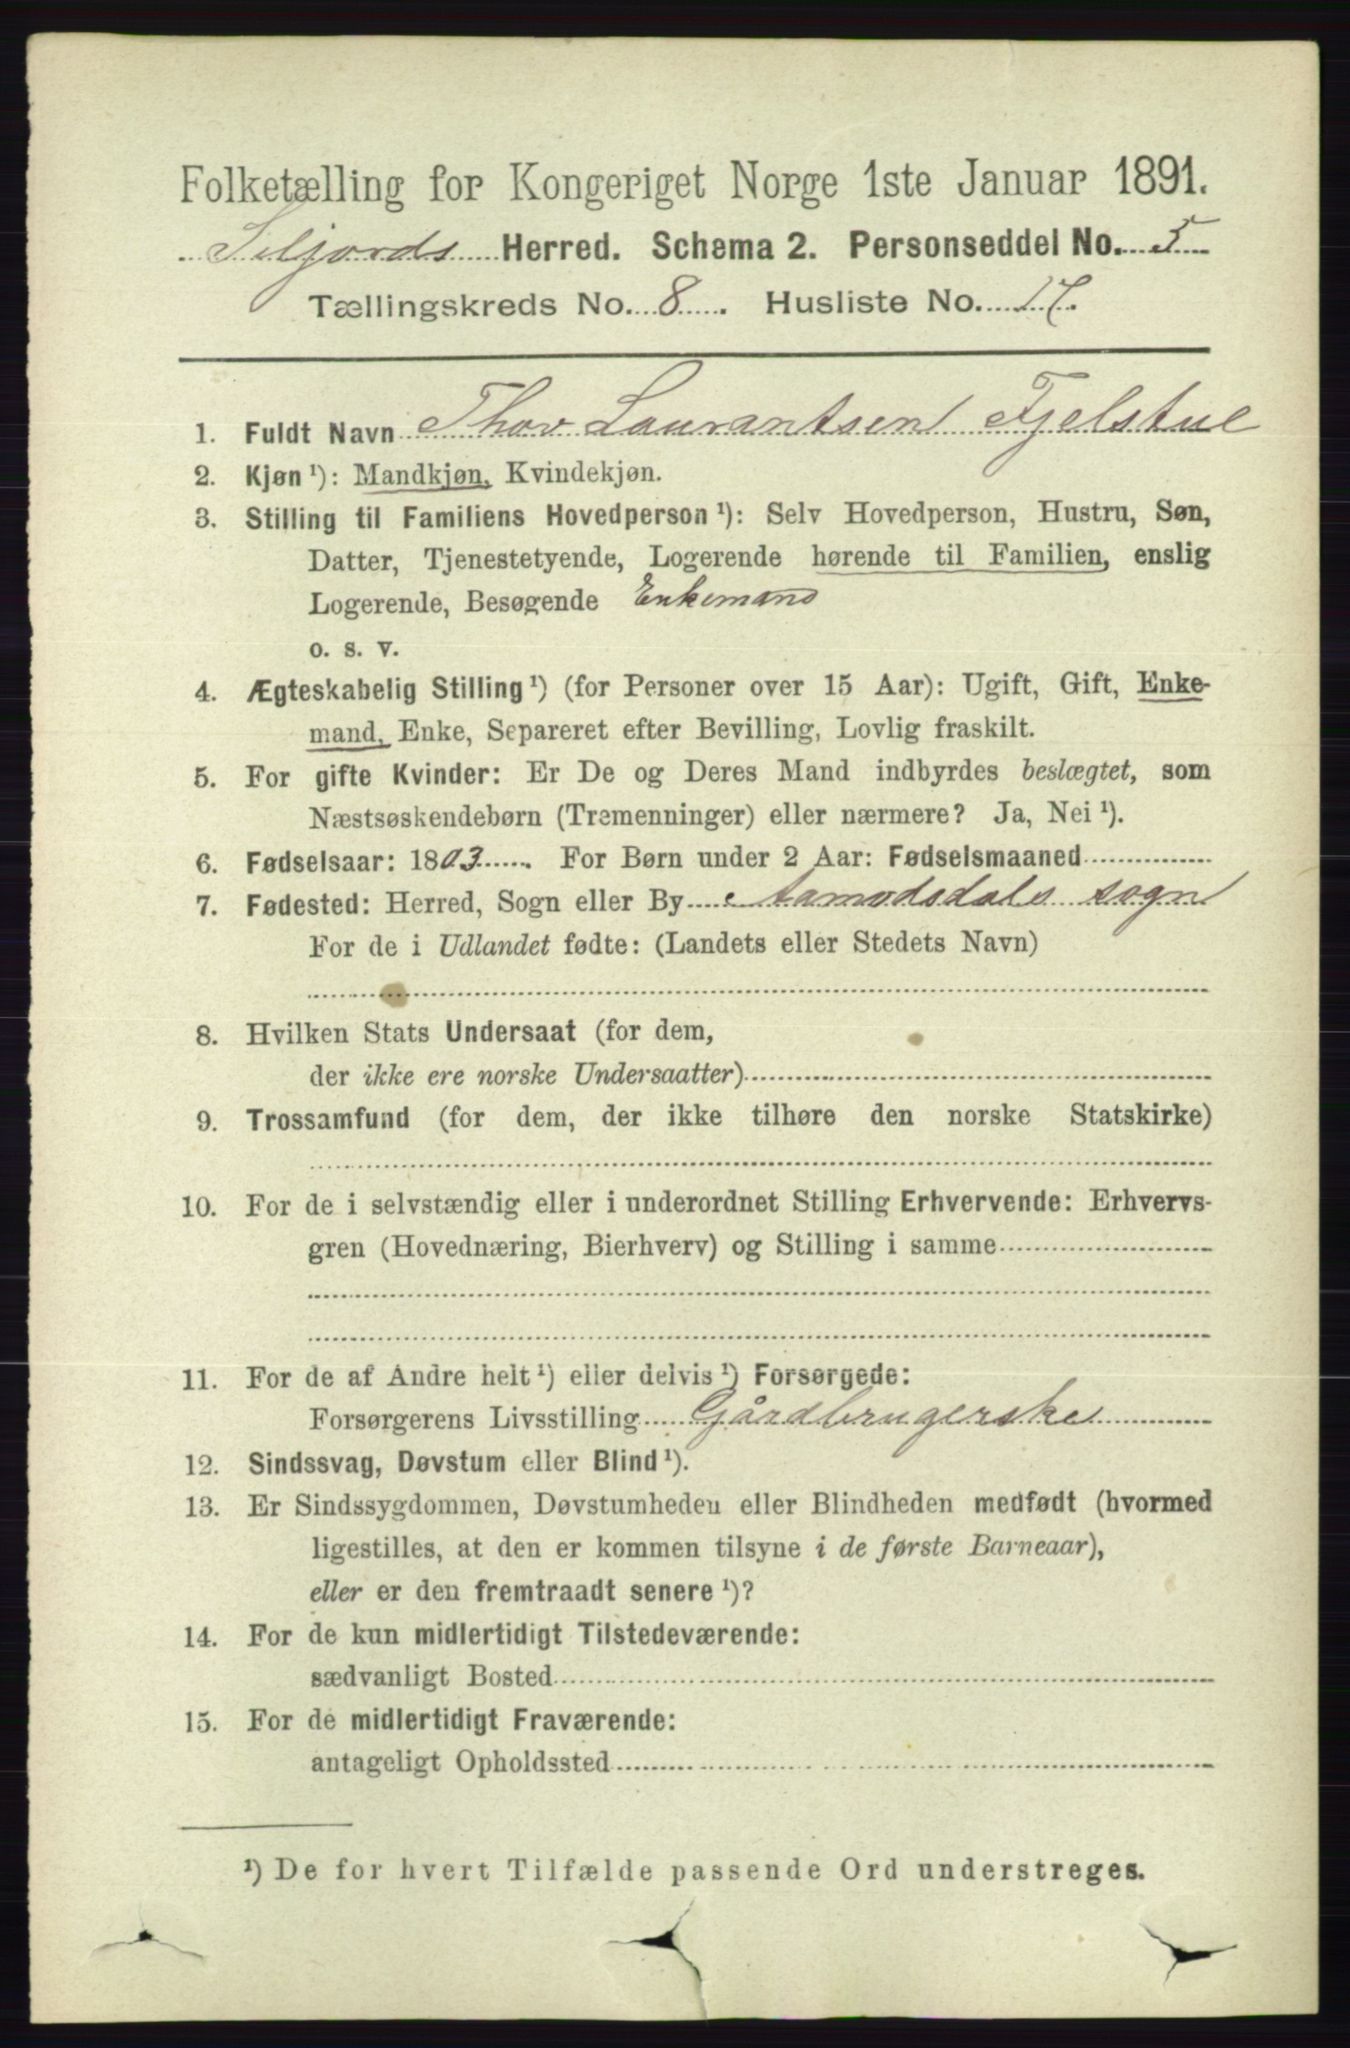 Folketælling for Kongeriget Norge 1ste Januar 1891.
Seljords Herred. Schema 2. Personseddel No. 5
Tællingskreds No. 8. Husliste No. 17.
1. Fuldt Navn Thov Laurantsen Fjelstul
2. Kjøn ¹): Mandkjøn, Kvindekjøn.
3. Stilling til Familiens Hovedperson ¹): Selv Hovedperson, Hustru, Søn,
Datter, Tjenestetyende, Logerende hørende til Familien, enslig
Logerende, Besøgende Enkemand
o. s. v.
4. Ægteskabelig Stilling ¹) (for Personer over 15 Aar): Ugift, Gift, Enke-
mand, Enke, Separeret efter Bevilling, Lovlig fraskilt.
5. For gifte Kvinder: Er De og Deres Mand indbyrdes beslægtet, som
Næstsøskendebørn (Tremenninger) eller nærmere? Ja, Nei ¹).
6. Fødselsaar: 1803. For Børn under 2 Aar: Fødselsmaaned
7. Fødested: Herred, Sogn eller By Aamodsdals sogn
For de i Udlandet fødte: (Landets eller Stedets Navn)
8. Hvilken Stats Undersaat (for dem,
der ikke ere norske Undersaatter)
9. Trossamfund (for dem, der ikke tilhøre den norske Statskirke)
10. For de i selvstændig eller i underordnet Stilling Erhvervende: Erhvervs-
gren (Hovednæring, Bierhverv) og Stilling i samme
11. For de af Andre helt ¹) eller delvis ¹) Forsørgede:
Forsørgerens Livsstilling Gårdbrugerske
12. Sindssvag, Døvstum eller Blind ¹).
13. Er Sindssygdommen, Døvstumheden eller Blindheden medfødt (hvormed
ligestilles, at den er kommen tilsyne i de første Barneaar),
eller er den fremtraadt senere ¹)?
14. For de kun midlertidigt Tilstedeværende:
sædvanligt Bosted
15. For de midlertidigt Fraværende:
antageligt Opholdssted
¹) De for hvert Tilfælde passende Ord understreges.